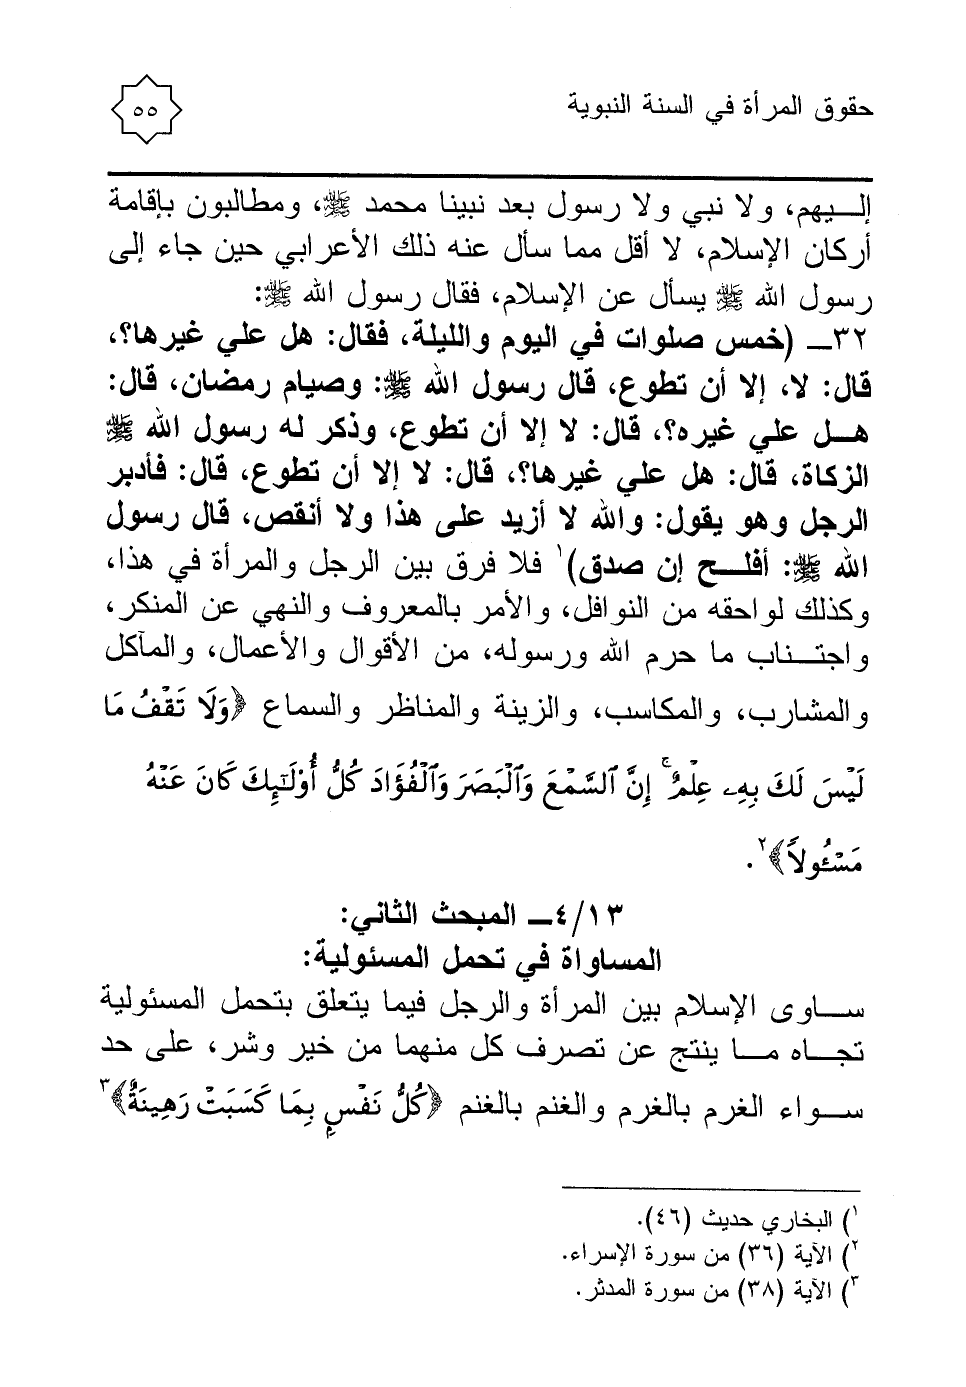 حقوق المرأة في السنة النبوية
٥٥
إلـــيهم، ولا نبي ولا رسول بعد نبينا محمد ﷺ، ومطالبون بإقامة
أركان الإسلام، لا أقل مما سأل عنه ذلك الأعرابي حين جاء إلى
رسول الله ﷺ يسأل عن الإسلام، فقال رسول الله ﷺ:
٣٢ــ (خمس صلوات في اليوم والليلة، فقال: هل علي غيرها؟،
قال: لا، إلا أن تطوع، قال رسول الله ﷺ: وصيام رمضان، قال:
هـــل علي غيره؟، قال: لا إلا أن تطوع، وذكر له رسول الله ﷺ
الزكاة، قال: هل علي غيرها؟، قال: لا إلا أن تطوع، قال: فأدبر
الرجل وهو يقول: والله لا أزيد على هذا ولا أنقص، قال رسول
الله ﷺ: أفلـــح إن صدق)١ فلا فرق بين الرجل والمرأة في هذا،
وكذلك لواحقه من النوافل، والأمر بالمعروف والنهي عن المنكر،
واجتـــناب ما حرم الله ورسوله، من الأقوال والأعمال، والمآكل
والمشارب، والمكاسب، والزينة والمناظر والسماع ﴿وَلَا تَقْفُ مَا
لَيْسَ لَكَ بِهِۦ عِلْمٌ ۚ إِنَّ ٱلسَّمْعَ وَٱلْبَصَرَ وَٱلْفُؤَادَ كُلُّ أُوْلَـٰٓئِكَ كَانَ عَنْهُ
مَسْـُٔولاً﴾٢.
٤/١٣ــ المبحث الثاني:
المساواة في تحمل المسئولية:
ســـاوى الإسلام بين المرأة والرجل فيما يتعلق بتحمل المسئولية
تجـــاه مـــا ينتج عن تصرف كل منهما من خير وشر، على حد
ســـواء الغرم بالغرم والغنم بالغنم ﴿كُلُّ نَفْسٍۭ بِمَا كَسَبَتْ رَهِينَةٌ﴾٣
١) البخاري حديث (٤٦).
٢) الآية (٣٦) من سورة الإسراء.
٣) الآية (٣٨) من سورة المدثر.